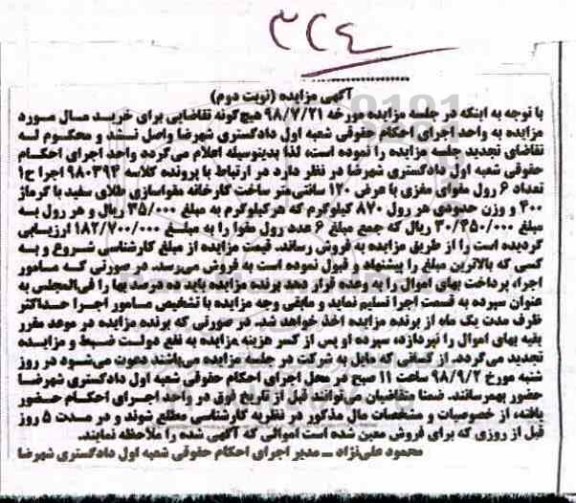 ۳۲۴
آگهی مزایده (نوبت دوم)
با توجه به اینکه در جلسه مزایده مورخه ۹۸/۷/۲۱ هیچ‌گونه تقاضایی برای خرید مال مورد
مزایده به واحد اجرای احکام حقوقی شعبه اول دادگستری شهرضا واصل نشد و محکوم له
تقاضای تجدید جلسه مزایده را نموده است، لذا بدینوسیله اعلام می‌گردد واحد اجرای احکام
حقوقی شعبه اول دادگستری شهرضا در نظر دارد در ارتباط با پرونده کلاسه ۹۸۰۳۹۴ اجرا ح۱
تعداد ۶ رول مقوای مغزی با عرض ۱۲۰ سانتی‌متر ساخت کارخانه مقواسازی طلای سفید با گرماژ
۴۰۰ و وزن حدودی هر رول ۸۷۰ کیلوگرم که هر کیلوگرم به مبلغ ۳۵/۰۰۰ ریال و هر رول به
مبلغ ۳۰/۴۵۰/۰۰۰ ریال که جمع مبلغ ۶ عدد رول مقوا را به مبلغ ۱۸۲/۷۰۰/۰۰۰ ارزیابی
گردیده است را از طریق مزایده به فروش رساند. قیمت مزایده از مبلغ کارشناسی شروع و به
کسی که بالاترین مبلغ را پیشنهاد و قبول نموده است به فروش می‌رسد. در صورتی که مامور
اجرا، پرداخت بهای اموال را به وعده قرار دهد برنده مزایده باید ده درصد بها را فی‌المجلس به
عنوان سپرده به قسمت اجرا تسلیم نماید و مابقی وجه مزایده با تشخیص مامور اجرا حداکثر
ظرف مدت یک ماه از برنده مزایده اخذ خواهد شد. در صورتی که برنده مزایده در موعد مقرر
بقیه بهای اموال را نپردازد، سپرده او پس از کسر هزینه مزایده به نفع دولت ضبط و مزایده
تجدید می‌گردد. از کسانی که مایل به شرکت در جلسه مزایده می‌باشند دعوت می‌شود در روز
شنبه مورخ ۹۸/۹/۲ ساعت ۱۱ صبح در محل اجرای احکام حقوقی شعبه اول دادگستری شهرضا
حضور بهمرسانند. ضمنا متقاضیان می‌توانند قبل از تاریخ فوق در واحد اجرای احکام حضور
یافته، از خصوصیات و مشخصات مال مذکور در نظریه کارشناسی مطلع شوند و در مدت ۵ روز
قبل از روزی که برای فروش معین شده است اموالی که آگهی شده را ملاحظه نمایند.
محمود علی‌نژاد ــ مدیر اجرای احکام حقوقی شعبه اول دادگستری شهرضا